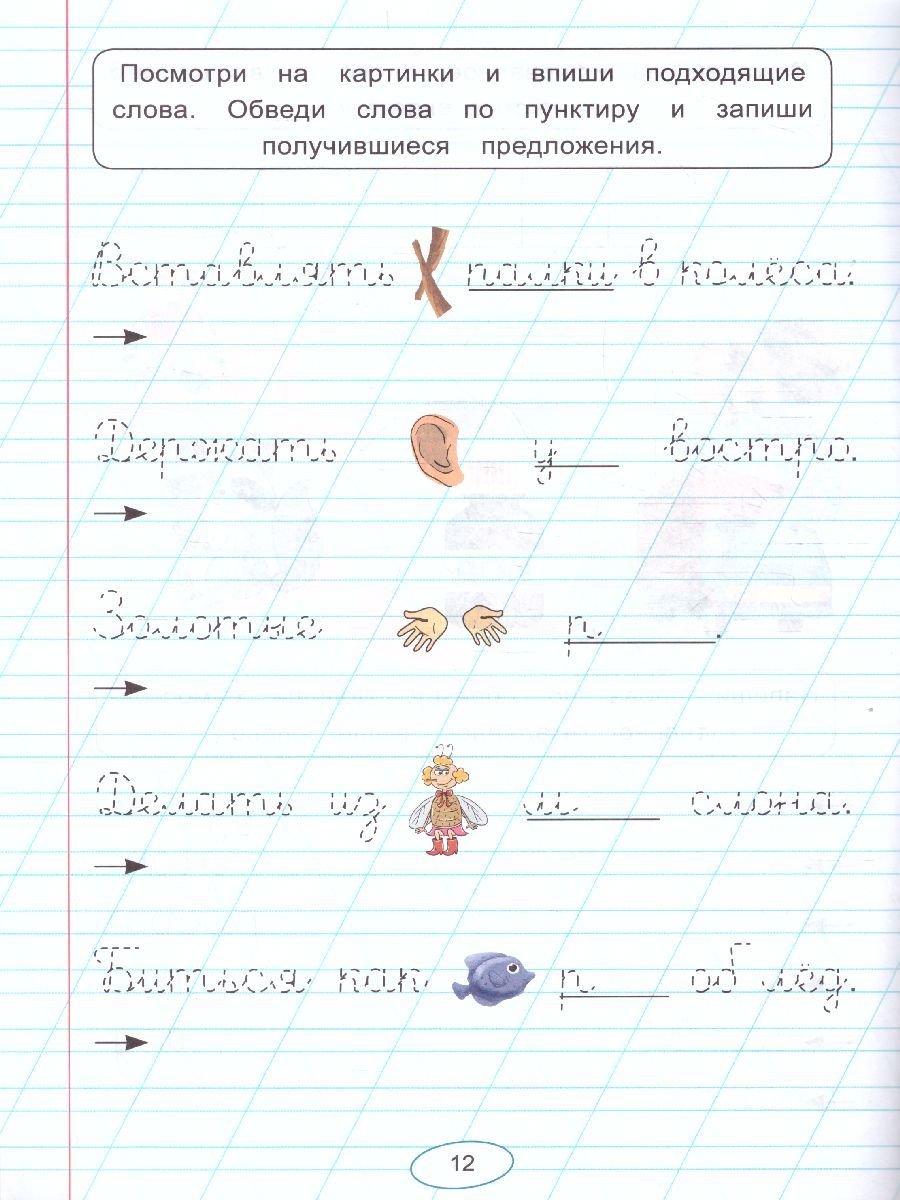 Посмотри на картинки и впиши подходящие
слова. Обведи слова по пунктиру и запиши
получившиеся предложения.
Вставлять палки в колёса.
Держать у востро.
Золотые р.
Делать из м слона.
Биться как р об лёд.
12